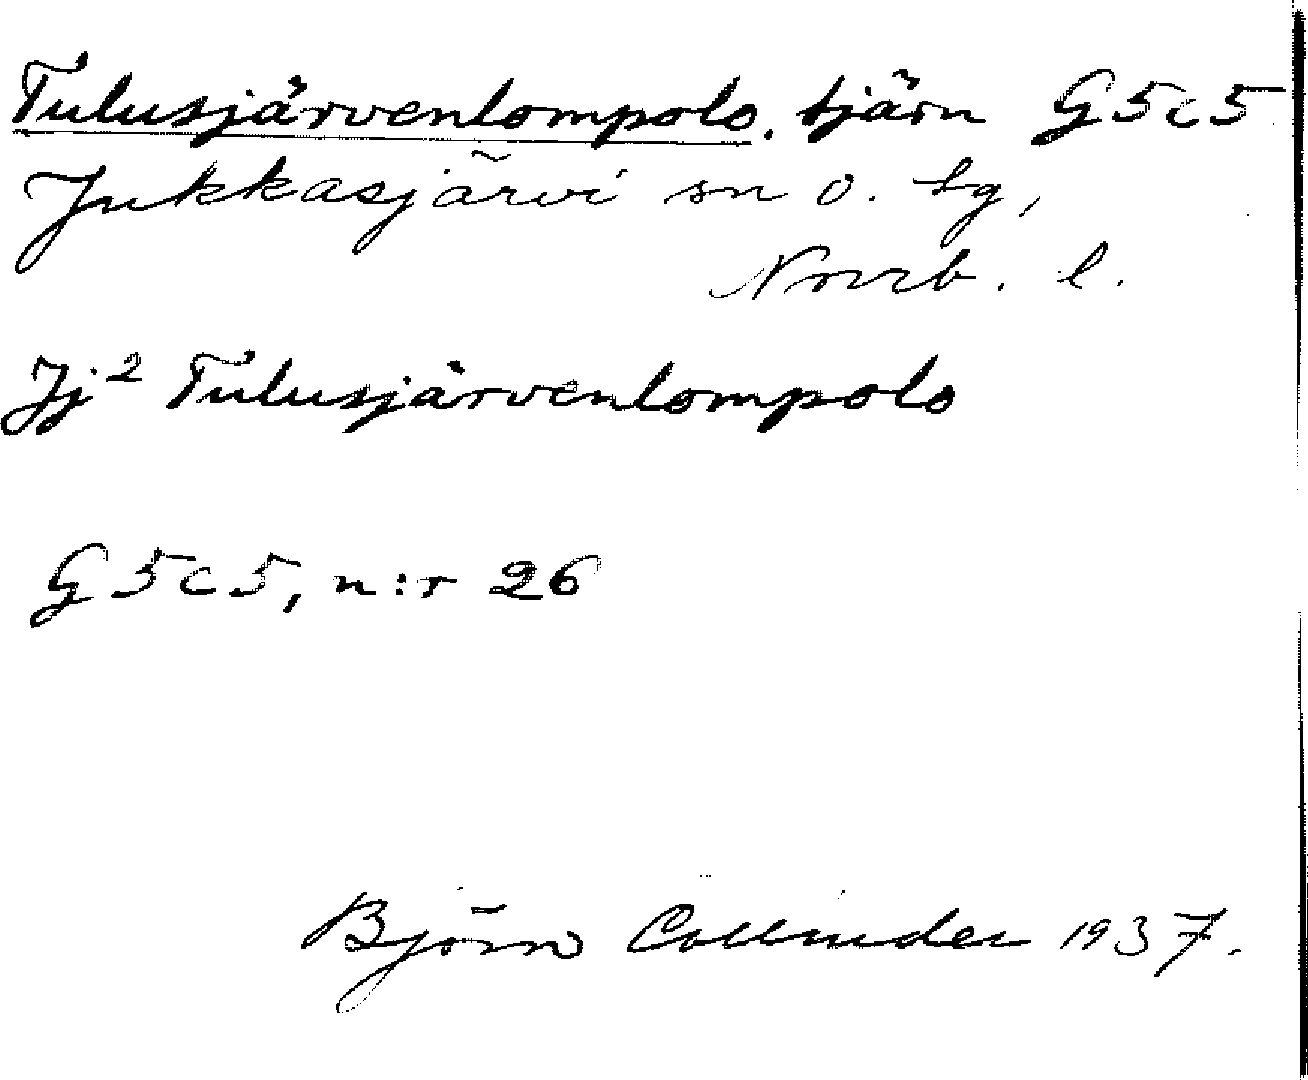 Tulusjärvenlompolo. tjärn G5c5
Jukkasjärvi sn o. tg,
Norrb. l.
Jj² Tulusjärvenlompolo
G5c5, n:r 26
Björn Collinder 1937.